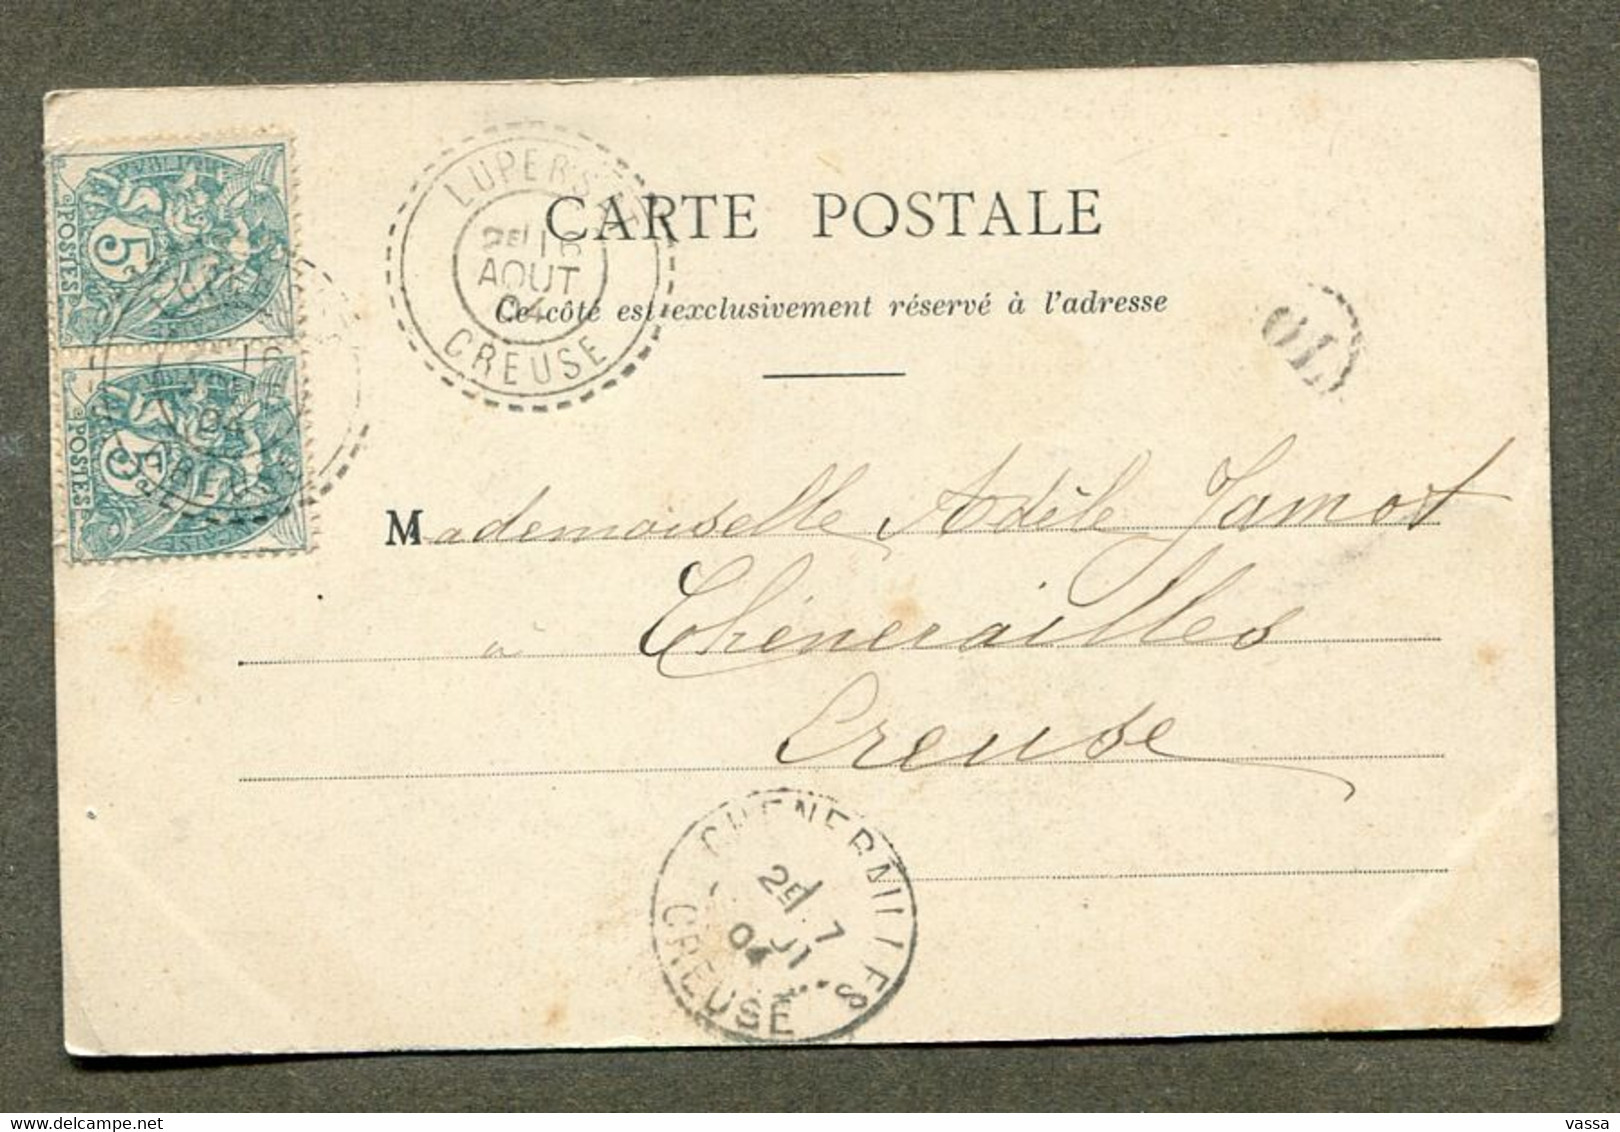 LUPERSAT
2E 16
AOUT
04
CREUSE
CARTE POSTALE
Ce côté est exclusivement réservé à l'adresse
5
POSTES
16
04
5
POSTES
Mademoiselle Adèle Jamot
à Chénerailles
Creuse
CHENERAILLES
2E 7
04
CREUSE
vassa